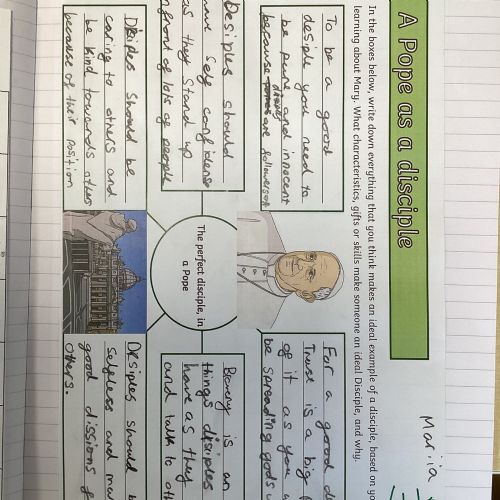 Mariia
A Pope as a disciple
In the boxes below, write down everything that you think makes an ideal example of a disciple, based on yo
learning about Mary. What characteristics, gifts or skills make someone an ideal Disciple, and why.
To be a good
desiple you need to
be pure and innocent
because are followers of
For a good d
Trust is a big
of it as you
be spreading gods
Desiples should
have self confidense
as they stand up
infront of lots of people
The perfect disciple, in
a Pope
is an
things desiples
have as they
and talk to ot
Desiples should be
caring to others and
be kind towards others
because of their position
Desiples should b
selfless and ma
good of
others.